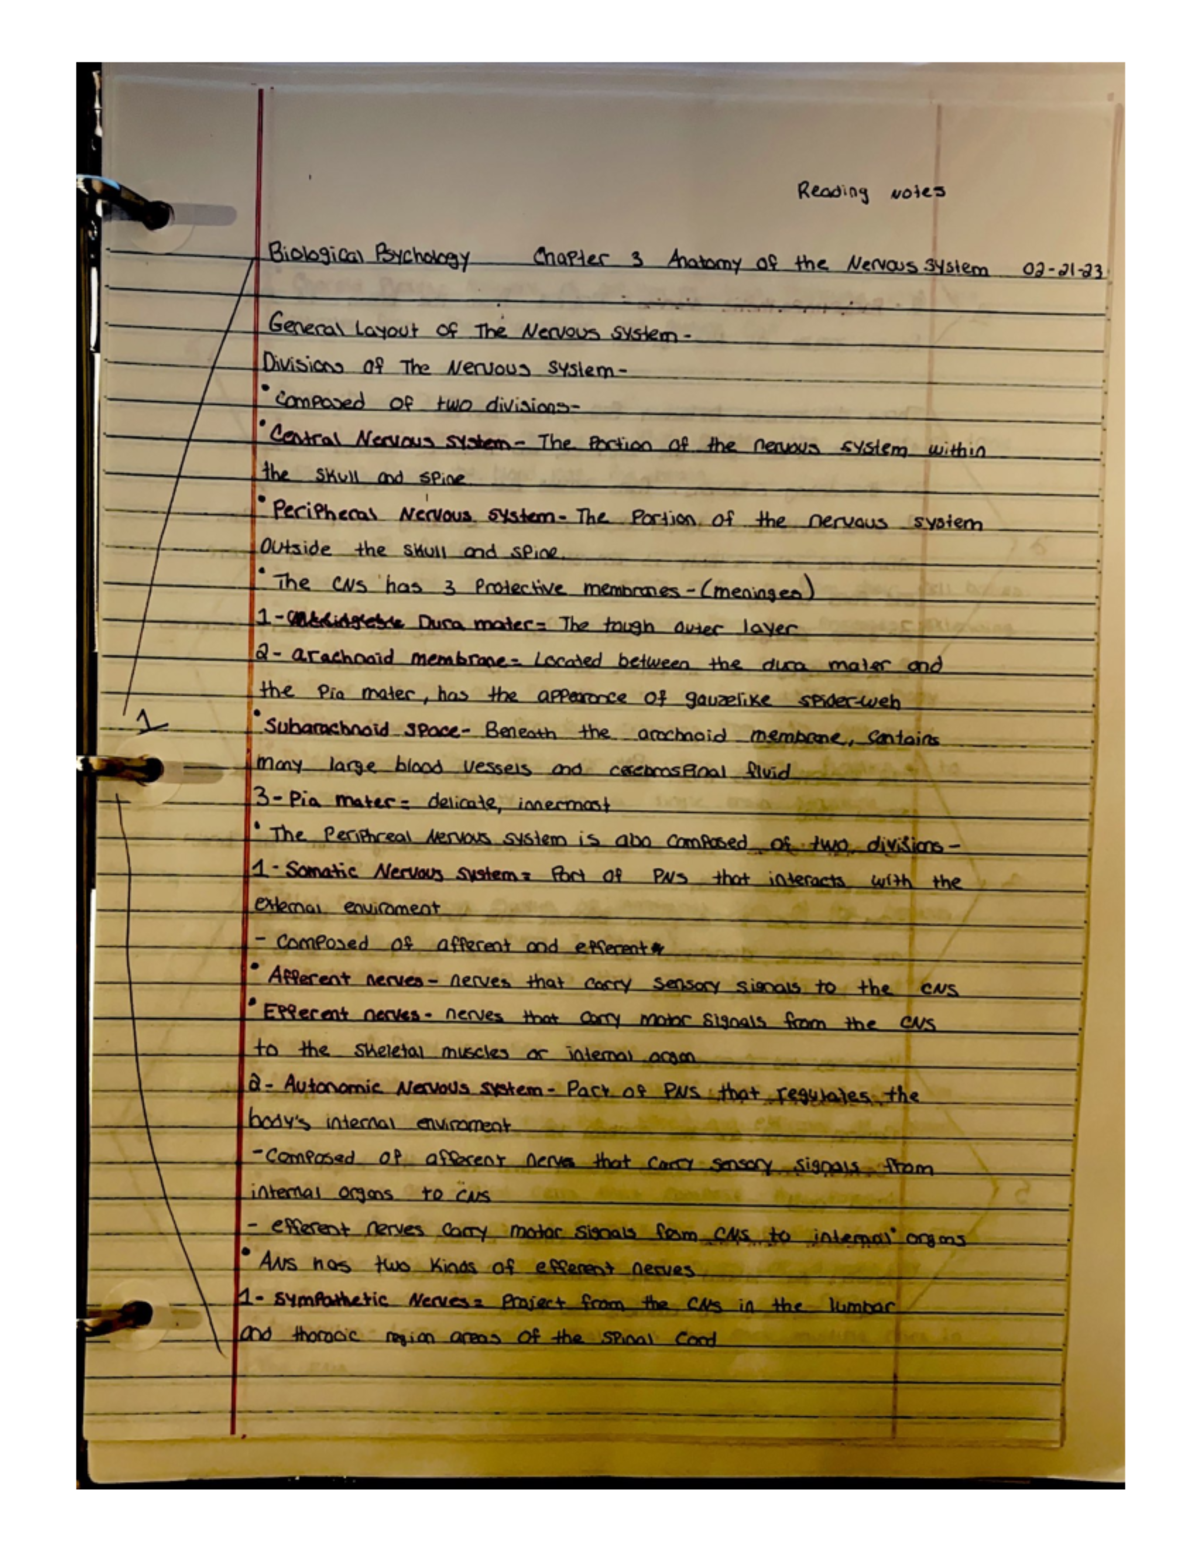 Reading Notes
Biological Psychology Chapter 3 Anatomy of the Nervous System 02-21-23
General Layout of The Nervous System-
Divisions of The Nervous System-
• Composed of two divisions-
• Central Nervous System- The Portion of the nervous system within
the skull and spine
• Peripheral Nervous System- The Portion of the nervous system
outside the skull and spine.
• The CNS has 3 Protective membranes-(meninges)
1- Dura mater= The tough outer layer
2- arachnoid membrane= Located between the dura mater and
the Pia mater, has the appearance of gauzelike spider-web
• Subarachnoid space- Beneath the arachnoid membrane, contains
1
many large blood vessels and cerebrosfinal fluid
3- Pia mater= delicate, innermost
• The Periphreal Nervous system is also composed of two divisions-
1- Somatic Nervous System= Part of PNS that interacts with the
external enviroment
- composed of afferent and efferent
• Afferent nerves- nerves that carry sensory signals to the CNS
• Efferent nerves- nerves that carry motor signals from the CNS
to the skeletal muscles or internal organ
2- Autonomic Nervous System- Part of PNS that regulates the
body's internal enviroment
- Composed of afferent nerves that carry sensory signals from
internal organs to CNS
- efferent nerves carry motor signals from CNS to internal organs
• ANS has two kinds of efferent nerves
1- Sympathetic Nerves= Project from the CNS in the lumbar
and thoracic region areas of the spinal cord